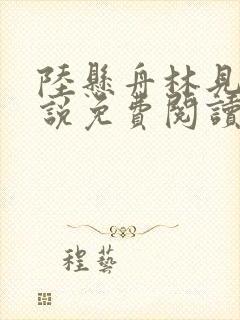 陸懸舟林見
說免費閱讀
程藝